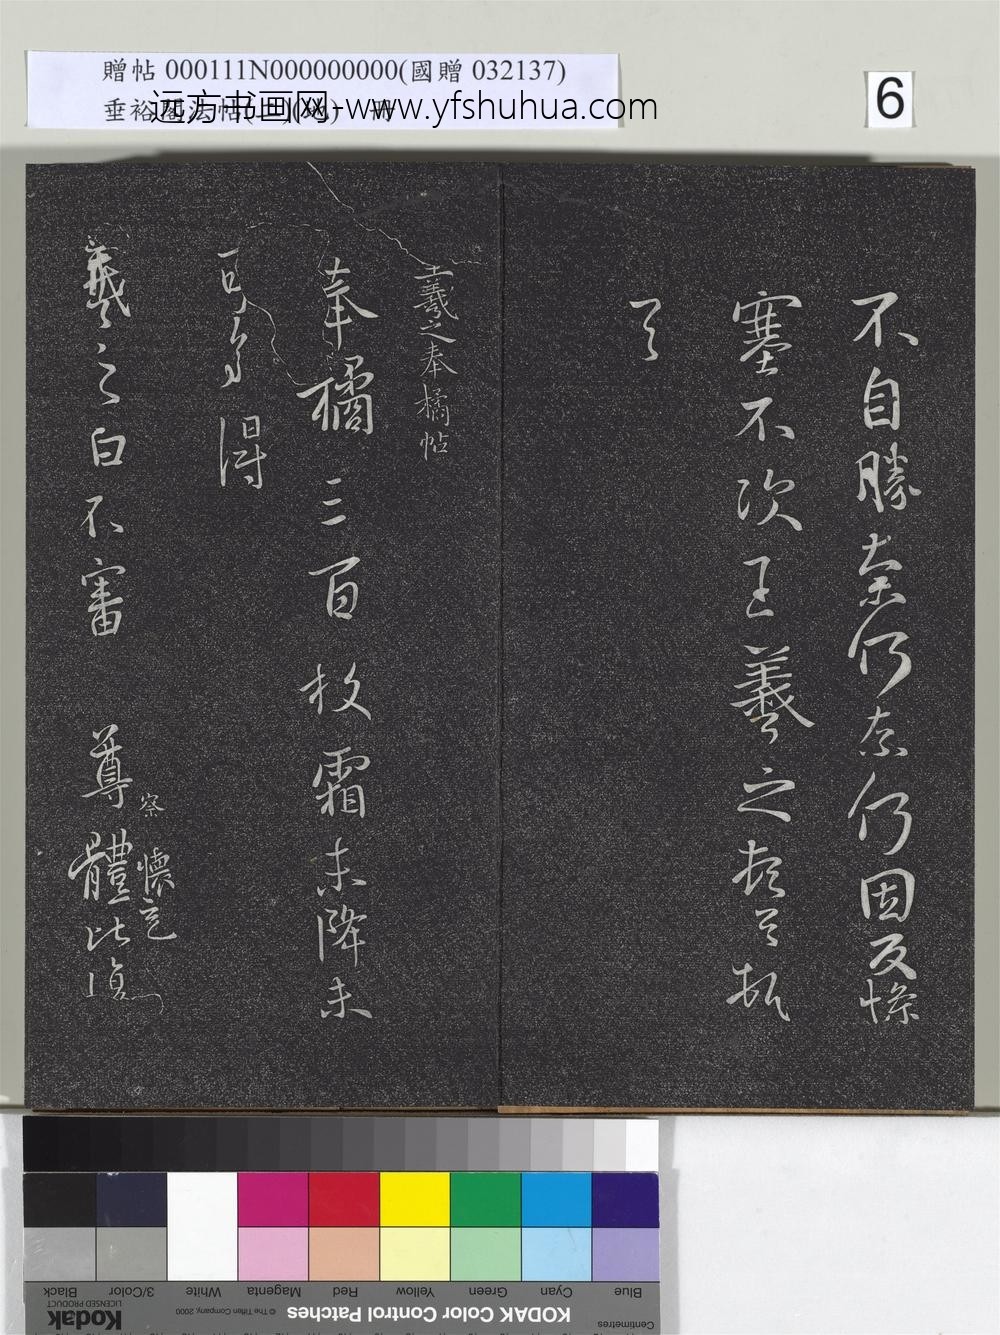 贈帖 000111N000000000(國贈 032137)
垂裕閣法帖
远方书画网-www.yfshuhua.com
6
不自勝奈何奈何因反慘
塞不次王羲之頓首頓
首
王羲之奉橘帖
奉橘三百枚霜未降未
可多得
察 懷充
羲之白不審 尊體比復
Black
3/Color
White
Magenta
Red
Yellow
Green
Cyan
Blue
Kodak
LICENSED PRODUCT
© The Tiffen Company, 2000
KODAK Color Control Patches
Centimetres